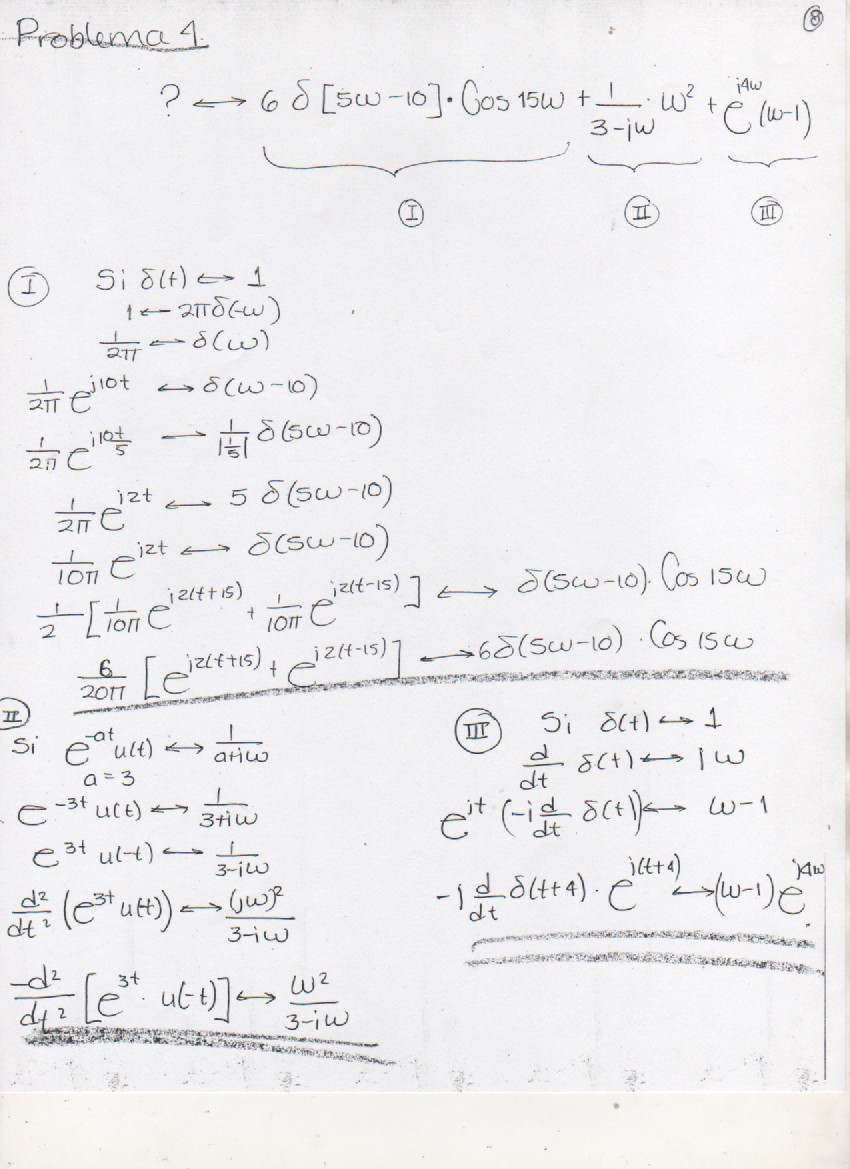 ⑧
Problema 4
? ↔ 6 δ[5ω-10]·Cos 15ω + 1/(3-jω) · ω² + e^{j4ω} (ω-1)
Ⓘ Ⅱ Ⅲ
Ⓘ Si δ(t) ↔ 1
1 ↔ 2πδ(-ω)
1/2π ↔ δ(ω)
1/2π e^{j10t} ↔ δ(ω-10)
1/2π e^{j10t/5} — 1/|1/5| δ(5ω-10)
1/2π e^{j2t} ↔ 5 δ(5ω-10)
1/10π e^{j2t} ↔ δ(5ω-10)
1/2 [1/10π e^{j2(t+15)} + 1/10π e^{j2(t-15)}] ↔ δ(5ω-10)·Cos 15ω
6/20π [e^{j2(t+15)} + e^{j2(t-15)}] ↔ 6δ(5ω-10)·Cos 15ω
Ⅱ
Si e^{-at} u(t) ↔ 1/(a+jω)
a=3
e^{-3t} u(t) ↔ 1/(3+jω)
e^{3t} u(-t) ↔ 1/(3-jω)
d²/dt² (e^{3t} u(t)) ↔ (jω)²/(3-jω)
-d²/dt² [e^{3t}· u(-t)] ↔ ω²/(3-jω)
Ⅲ Si δ(t) ↔ 1
d/dt δ(t) ↔ jω
e^{jt} (-j d/dt δ(t)) ↔ ω-1
-j d/dt δ(t+4)· e^{j(t+4)} ↔ (ω-1) e^{j4ω}